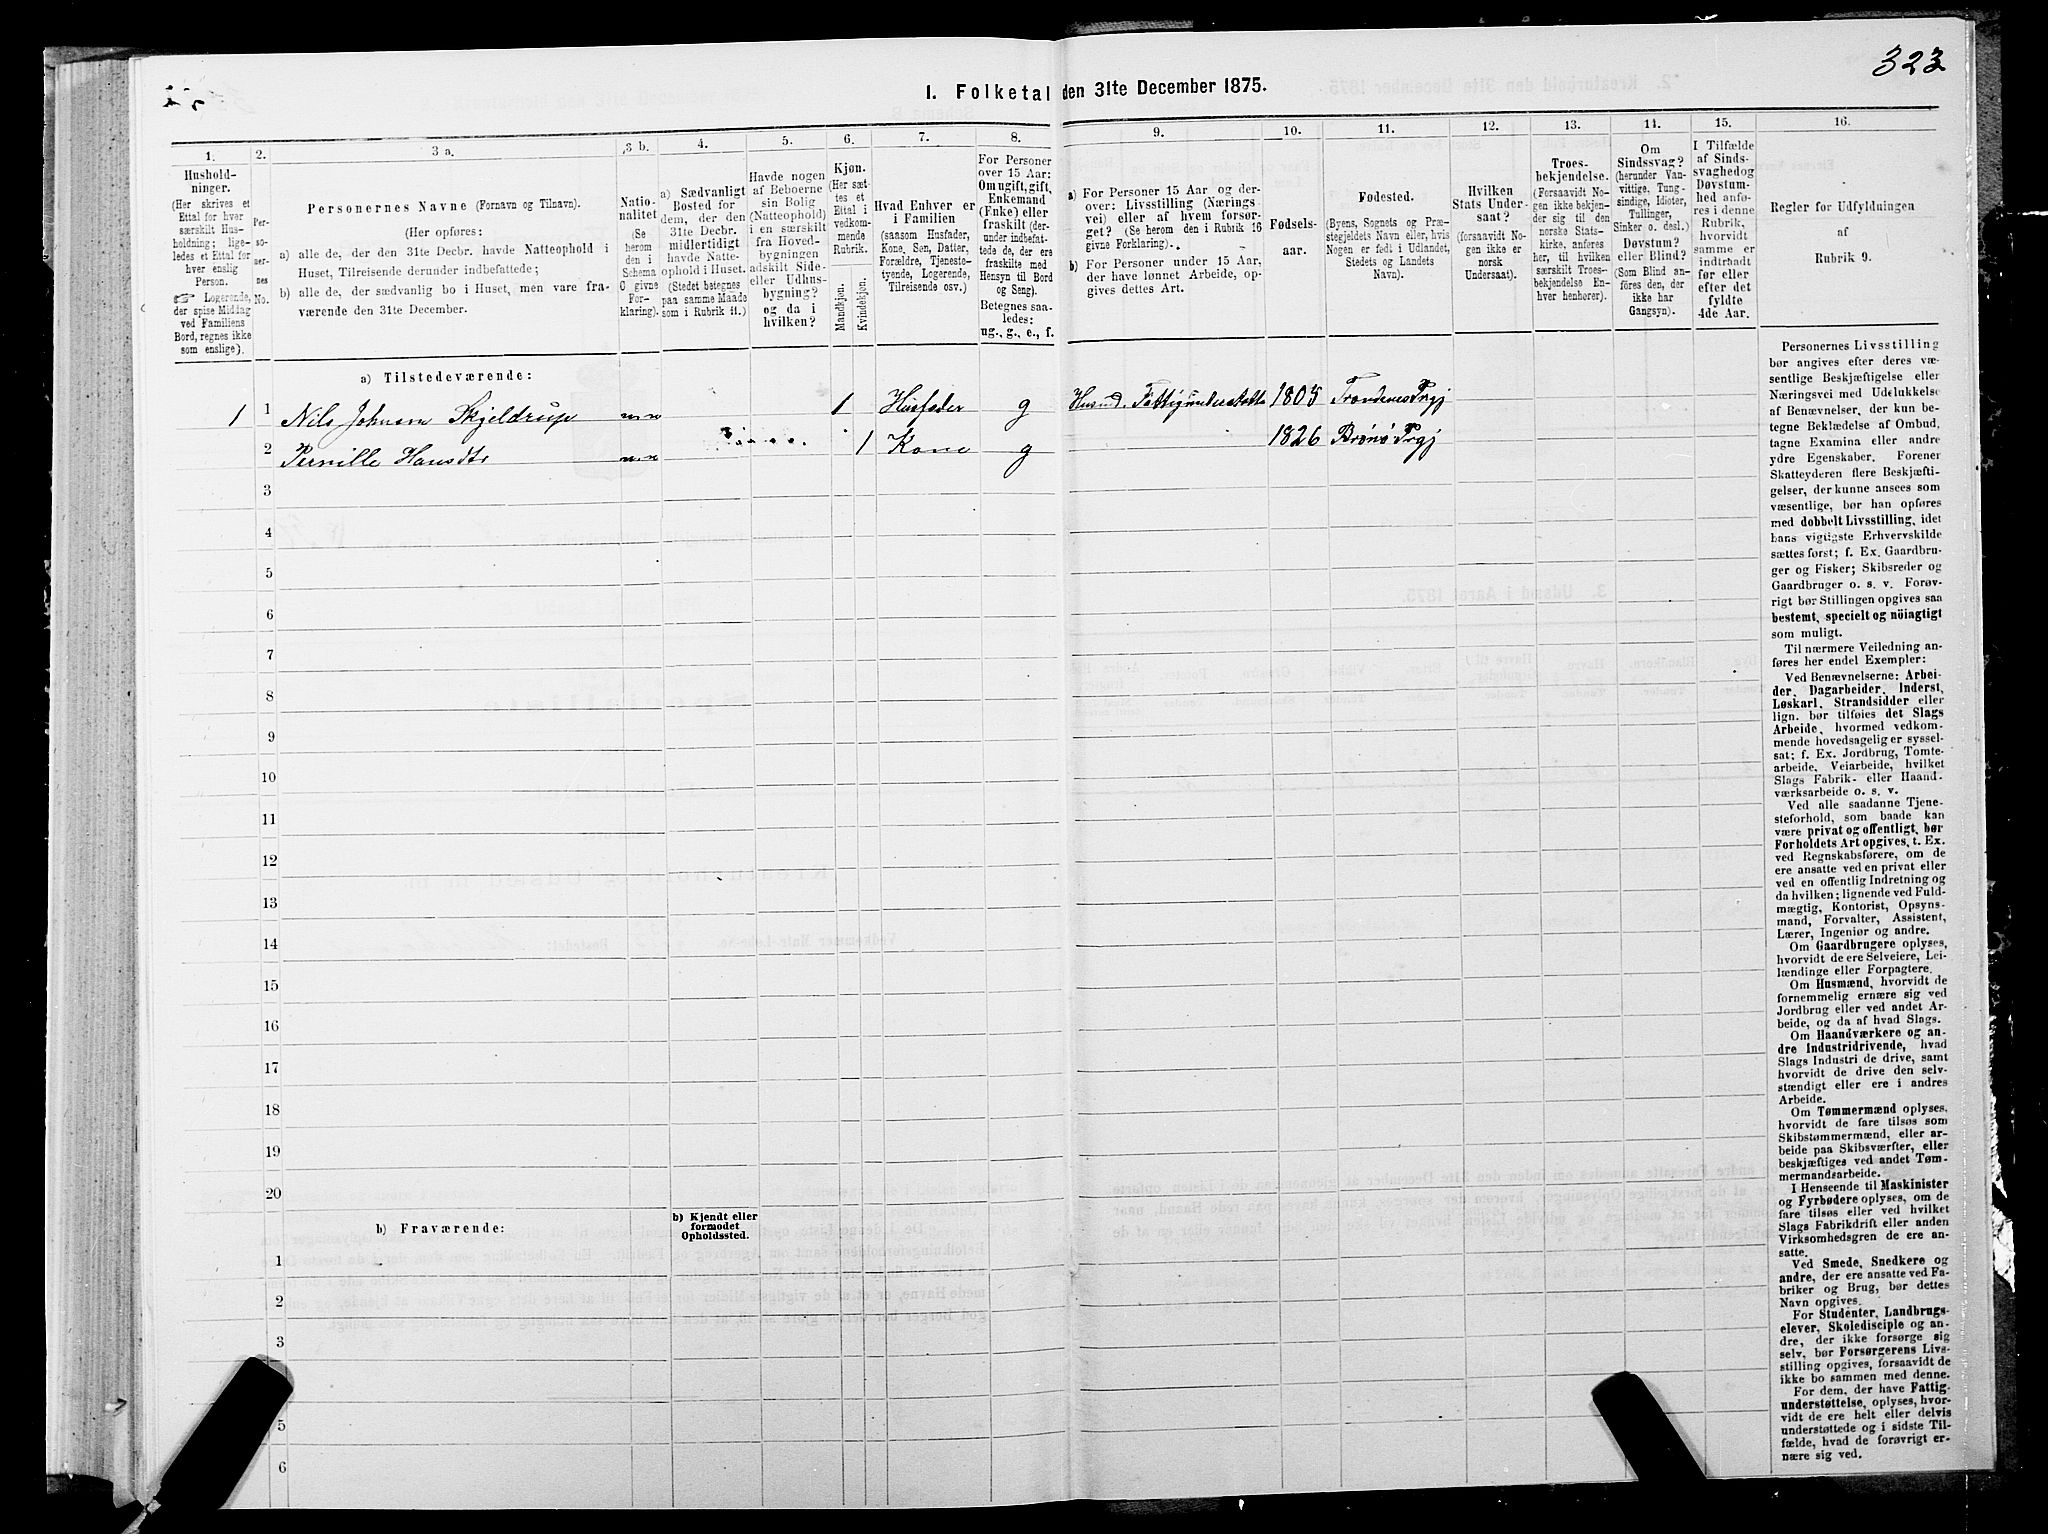 323
I. Folketal den 31te December 1875.
1.
Hushold-
ninger.
(Her skrives et
Ettal for hver
særskilt Hus-
holdning; lige-
ledes et Ettal for
hver enslig
Person.
☞ Logerende,
der spise Middag
ved Familiens
Bord, regnes ikke
som enslige).
2.
Per-
so-
ner-
nes
No.
3 a.
Personernes Navne (Fornavn og Tilnavn).
(Her opføres:
a) alle de, der den 31te Decbr. havde Natteophold i
Huset, Tilreisende derunder indbefattede;
b) alle de, der sædvanlig bo i Huset, men vare fra-
værende den 31te December.
3 b.
Natio-
nalitet
(Se
herom
den i
Schema
C givne
For-
klaring).
4.
a) Sædvanligt
Bosted for
dem, der den
31te Decbr.
midlertidigt
havde Natte-
ophold i Huset.
(Stedet betegnes
paa samme Maade
som i Rubrik 11.)
5.
Havde nogen
af Beboerne
sin Bolig
(Natteophold)
i en særskilt
fra Hoved-
bygningen
adskilt Side-
eller Udhus-
bygning?
og da i
hvilken?
6.
Kjøn.
(Her sæt-
tes et
Ettal i
vedkom-
mende
Rubrik.
Mandkjøn.
Kvindekjøn.
7.
Hvad Enhver er
i Familien
(saasom Husfader,
Kone, Søn, Datter,
Forældre, Tjeneste-
tyende, Logerende,
Tilreisende osv.)
8.
For Personer
over 15 Aar:
Om ugift, gift,
Enkemand
(Enke) eller
fraskilt (der-
under indbefat-
tede de, der ere
fraskilte med
Hensyn til Bord
og Seng).
Betegnes saa-
ledes:
ug., g., e., f.
9.
a) For Personer 15 Aar og der-
over: Livsstilling (Nærings-
vei) eller af hvem forsør-
get? (Se herom den i Rubrik 16
givne Forklaring).
b) For Personer under 15 Aar,
der have lønnet Arbeide, op-
gives dettes Art.
10.
Fødsels-
aar.
11.
Fødested.
(Byens, Sognets og Præ-
stegjeldets Navn eller, hvis
Nogen er født i Udlandet,
Stedets og Landets
Navn).
12.
Hvilken
Stats Under-
saat?
(forsaavidt No-
gen ikke er
norsk
Undersaat).
13.
Troes-
bekjendelse.
(Forsaavidt No-
gen ikke bekjen-
der sig til den
norske Stats-
kirke, anføres
her, til hvilken
særskilt Troes-
bekjendelse En-
hver henhører).
14.
Om
Sindssvag?
(herunder Van-
vittige, Tung-
sindige, Idioter,
Tullinger,
Sinker o. desl.)
Døvstum?
eller Blind?
(Som Blind an-
føres den, der
ikke har
Gangsyn).
15.
I Tilfælde
af Sinds-
svaghed og
Døvstum-
hed anfø-
res i denne
Rubrik,
hvorvidt
samme er
indtraadt
før eller
efter det
fyldte
4de Aar.
16.
Regler for Udfyldningen
af
Rubrik 9.
a) Tilstedeværende:
1 1 Nils Johnsen Skjeldrup n.n 1 Husfader g Husmd. Fattigunderstøtte 1805 Trondenes Prgj
2 Pernille Hansdtr n.n 1 Kone g 1826 Brönö Prgj
3
4
5
6
7
8
9
10
11
12
13
14
15
16
17
18
19
20
b) Fraværende:
b) Kjendt eller
formodet
Opholdssted.
1
2
3
5
6
Personernes Livsstilling
bør angives efter deres væ-
sentlige Beskjæftigelse eller
Næringsvei med Udelukkelse
af Benævnelser, der kun be-
tegne Beklædelse af Ombud,
tagne Examina eller andre
ydre Egenskaber. Forener
Skatteyderen flere Beskjæfti-
gelser, der kunne ansees som
væsentlige, bør han opføres
med dobbelt Livsstilling, idet
hans vigtigste Erhvervskilde
sættes først; f. Ex. Gaardbru-
ger og Fisker; Skibsreder og
Gaardbruger o. s. v. Forøv-
rigt bør Stillingen opgives saa
bestemt, specielt og nöiagtigt
som muligt.
Til nærmere Veiledning an-
føres her endel Exempler:
Ved Benævnelserne: Arbei-
der, Dagarbeider, Inderst,
Løskarl, Strandsidder eller
lign. bør tilføies det Slags
Arbeide, hvormed vedkom-
mende hovedsagelig er syssel-
sat; f. Ex. Jordbrug, Tomte-
arbeide, Veiarbeide, hvilket
Slags Fabrik- eller Haand-
værksarbeide o. s. v.
Ved alle saadanne Tjene-
steforhold, som baade kan
være privat og offentligt, bør
Forholdets Art opgives, f. Ex.
ved Regnskabsførere, om de
ere ansatte ved en privat eller
ved en offentlig Indretning og
da hvilken; lignende ved Fuld-
mægtig, Kontorist, Opsyns-
mand, Forvalter, Assistent,
Lærer, Ingeniør og andre.
Om Gaardbrugere oplyses,
hvorvidt de ere Selveiere, Lei-
lændinge eller Forpagtere.
Om Husmænd, hvorvidt de
fornemmelig ernære sig ved
Jordbrug eller ved andet Ar-
beide, og da af hvad Slags.
Om Haandværkere og an-
dre Industridrivende, hvad
Slags Industri de drive, samt
hvorvidt de drive den selv-
stændigt eller ere i andres
Arbeide.
Om Tømmermænd oplyses,
hvorvidt de fare tilsøs som
Skibstømmermænd, eller ar-
beide paa Skibsværfter, eller
beskjæftiges ved andet Tøm-
mermandsarbeide.
I Henseende til Maskinister
og Fyrbødere oplyses, om de
fare tilsøs eller ved hvilket
Slags Fabrikdrift eller anden
Virksomhedsgren de ere an-
satte.
Ved Smede, Snedkere og
andre, der ere ansatte ved Fa-
briker og Brug, bør dettes
Navn opgives.
For Studenter, Landbrugs-
elever, Skoledisciple og an-
dre, der ikke forsørge sig
selv, bør Forsørgerens Livs-
stilling opgives, forsaavidt de
ikke bo sammen med denne.
For dem, der have Fattig-
understøttelse, oplyses, hvor-
vidt de ere helt eller delvis
understøttede og i sidste Til-
fælde, hvad de forøvrigt er-
nære sig ved.